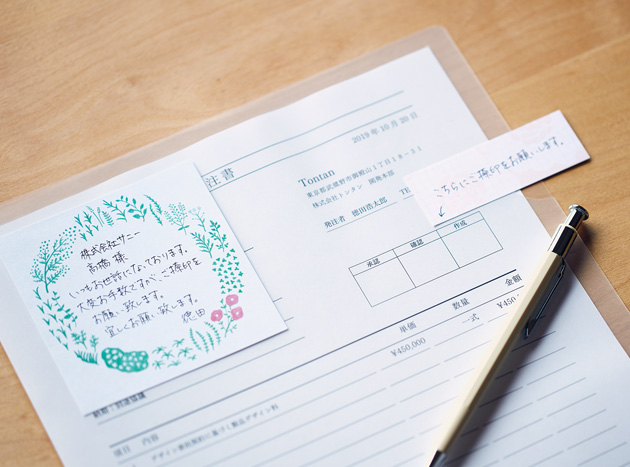 株式会社サニー
高橋 様
いつもお世話になっております。
大変お手数ですが、ご捺印を
お願い致します。
宜しくお願い致します。
徳田
注書
2019年10月20日
Tontan
東京都武蔵野市御殿山1丁目18-31
株式会社トンタン
発注者 徳田浩太郎 TE
こちらにご捺印をお願いします。
↓
承認 確認 作成
単価 数量 金額
¥450,000 式 ¥450
項目 内容
デザイン委託契約に基づく製品デザイン料